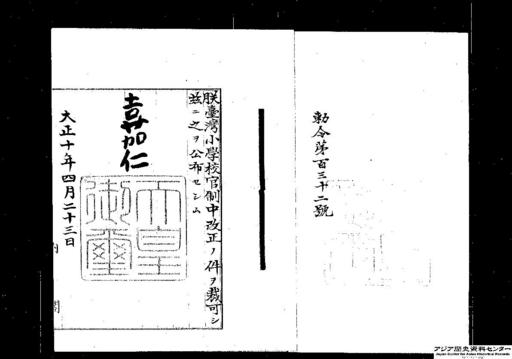 勅令第百三十二號
朕臺灣小學校官制中改正ノ件ヲ裁可シ
茲ニ之ヲ公布セシム
嘉仁
天皇
御璽
大正十年四月二十三日
内
閣
アジア歴史資料センター
Japan Center for Asian Historical Records